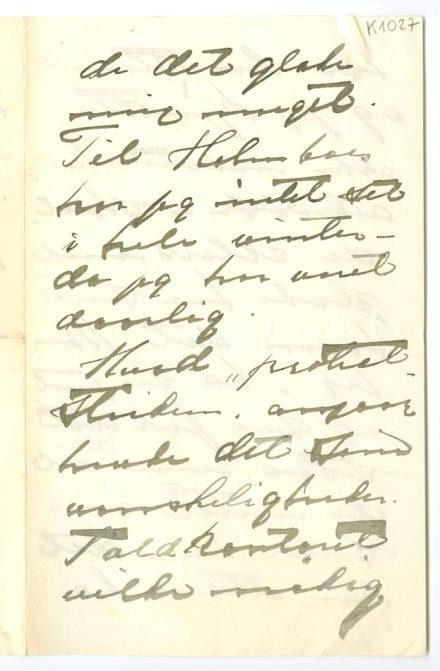 K1027
de det glæde
mig meget.
Til Holmboes
har jeg intet set
i hele vinter-
da jeg har været
daarlig.
Hvad "protræt-
angaar
havde det sine
vanskeligheder.
Toldkontoret
vilde nødig